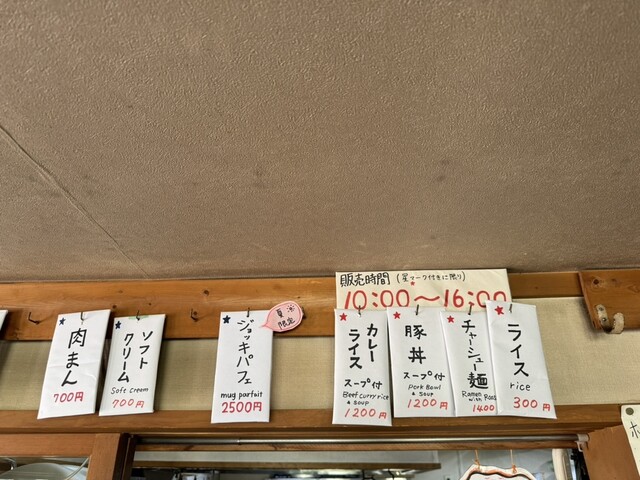 販売時間 (星マーク付きに限り)
10:00～16:00
肉まん
700円
ソフト
クリーム
Soft cream
700円
ジョッキパフェ
mug parfait
2500円
夏
限定
カレー
ライス
スープ付
Beef curry rice
& soup
1200円
豚丼
スープ付
Pork Bowl
& soup
1200円
チャーシュー麺
Ramen
with Roast
1400
ライス
rice
300円